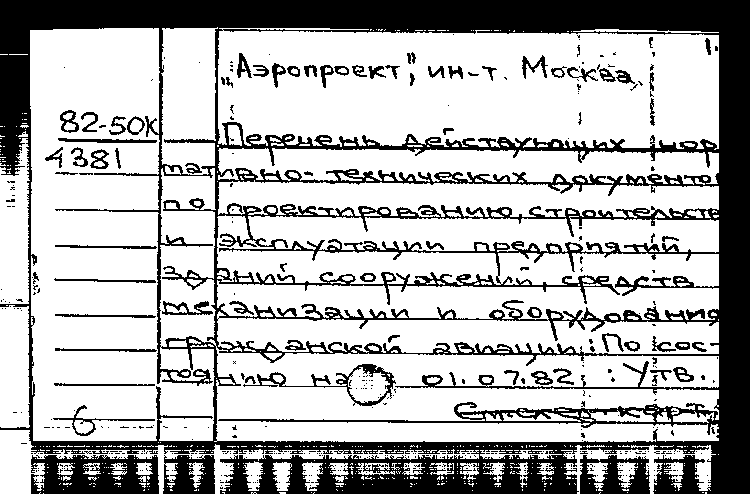 1.
„Аэропроект", ин-т. Москва.
82-50К
Перечень действующих нор
4381
мативно-технических документо
по проектированию, строительств
и эксплуатации предприятий,
зданий, сооружений, средств
механизации и оборудования
гражданской авиации: По сос-
тоянию на 01.07.82 : Утв.
6